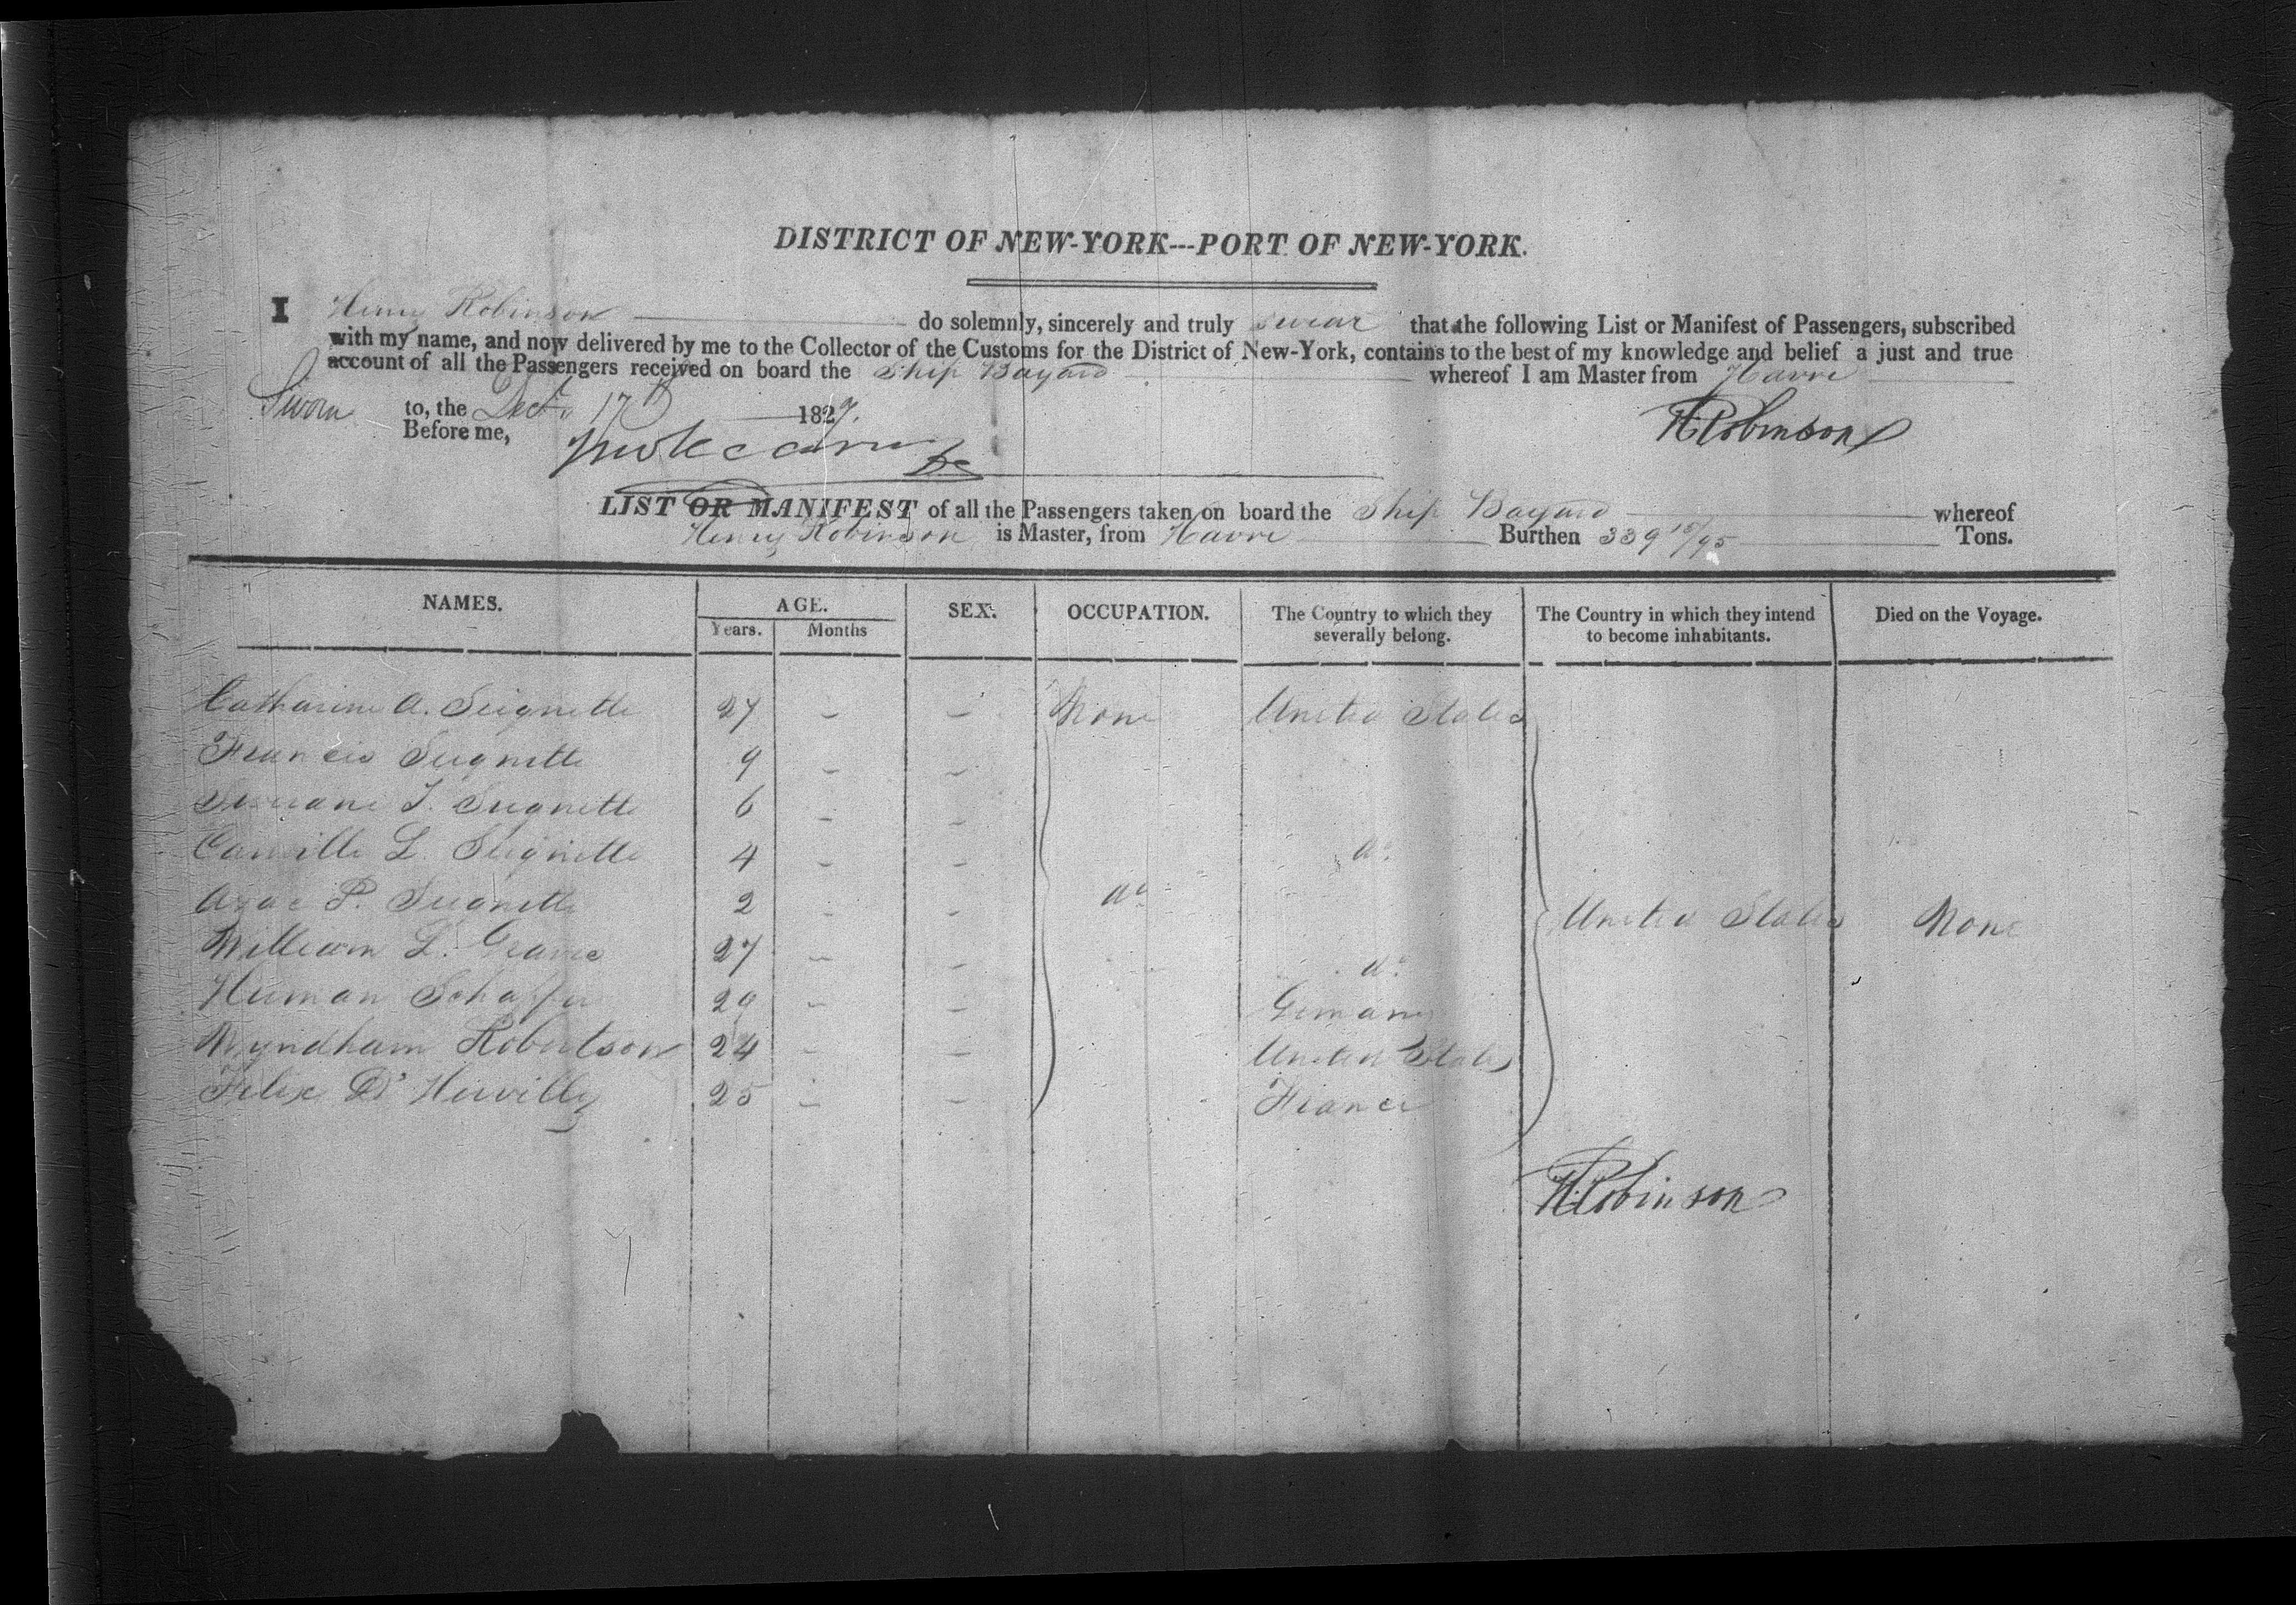 DISTRICT OF NEW-YORK---PORT OF NEW-YORK.
I Henry Robinson do solemnly, sincerely and truly swear that the following List or Manifest of Passengers, subscribed
with my name, and now delivered by me to the Collector of the Customs for the District of New-York, contains to the best of my knowledge and belief a just and true
account of all the Passengers received on board the Ship Bayard whereof I am Master from Havre
Sworn to, the Decr. 17th 1827.
Before me,
HRobinson
LIST OR MANIFEST of all the Passengers taken on board the Ship Bayard whereof
Henry Robinson is Master, from Havre Burthen 339 /95 Tons.
NAMES. AGE. SEX. OCCUPATION. The Country to which they severally belong. The Country in which they intend to become inhabitants. Died on the Voyage.
Years. Months
Catharine A. Seignette 27 - - None United States
Francis Seignette 9 - -
T. Seignette 6 - -
Camille L. Seignette 4 - - do.
P. Seignette 2 - - do United States None
William L. 27 - - do.
Herman Schaffer 29 - - Germany
Wyndham Robertson 24 - - United States
Felix D'Hervilly 25 - - France
HRobinson